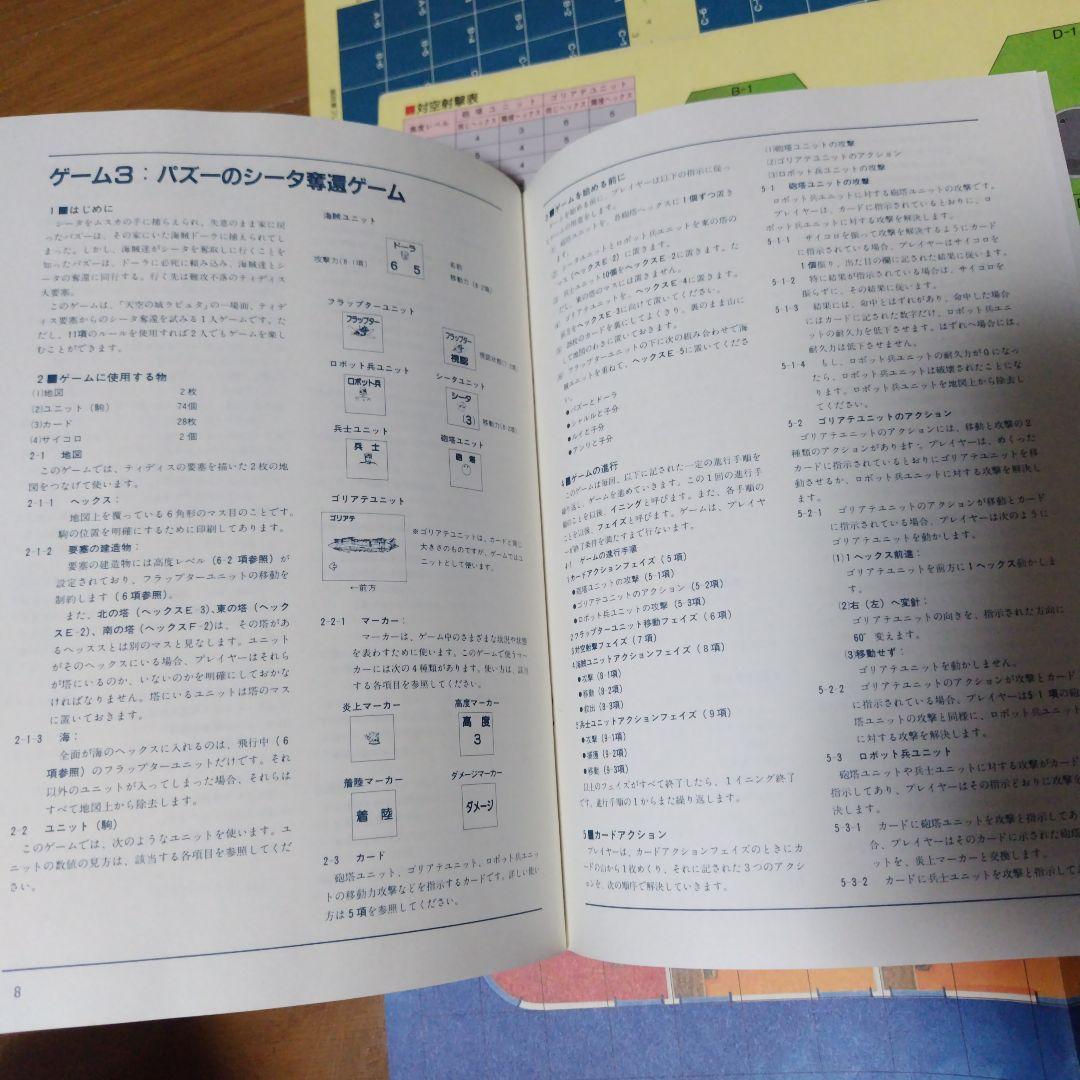 ゲーム3：パズーのシータ奪還ゲーム
1■はじめに
シータをムスカの手に捕えられ、失意のまま家に戻
ったパズーは、その家にいた海賊ドーラに捕えられてし
まった。しかし、海賊達がシータを奪取しに行くことを
知ったパズーは、ドーラに必死に頼み込み、海賊達とシ
ータの奪還に同行する。行く先は難攻不落のティディス
大要塞。
このゲームは、「天空の城ラピュタ」の一場面、ティデ
ィス要塞からのシータ奪還を試みる1人ゲームです。た
だし、11項のルールを使用すれば2人でもゲームを楽し
むことができます。
2■ゲームに使用する物
(1)地図 2枚
(2)ユニット（駒） 74個
(3)カード 28枚
(4)サイコロ 2個
2-1 地図
このゲームでは、ティディスの要塞を描いた2枚の地
図をつなげて使います。
2-1-1 ヘックス：
地図上を覆っている6角形のマス目のことです。
駒の位置を明確にするために印刷してあります。
2-1-2 要塞の建造物：
要塞の建造物には高度レベル（6-2項参照）が
設定されており、フラップターユニットの移動を
制約します（6項参照）。
また、北の塔（ヘックスE-3）、東の塔（ヘック
スE-2）、南の塔（ヘックスF-2）は、その塔があ
るヘックスとは別のマスと見なします。ユニット
がそのヘックスにいる場合、プレイヤーはそれら
が塔にいるのか、いないのかを明確にしておかな
ければなりません。塔にいるユニットは塔のマス
に置いておきます。
2-1-3 海：
全面が海のヘックスに入れるのは、飛行中（6
項参照）のフラップターユニットだけです。それ
以外のユニットが入ってしまった場合、それらは
すべて地図上から除去します。
2-2 ユニット（駒）
このゲームでは、次のようなユニットを使います。ユ
ニットの数値の見方は、該当する各項目を参照してくだ
さい。
8
海賊ユニット
ドーラ
6 5
攻撃力(8-1項)
名前
移動力(8-2項)
フラップターユニット
フラップター
フラップター
視認
ロボット兵ユニット
ロボット兵
シータユニット
シータ
(3)
移動力(8-2項)
兵士ユニット
兵士
砲塔ユニット
砲塔
ゴリアテユニット
ゴリアテ
※ゴリアテユニットは、カードと同じ
大きさのものですが、ゲームではユ
ニットとして使います。
←前方
2-2-1 マーカー：
マーカーは、ゲーム中のさまざまな状況や状態
を表わすために使います。このゲームで使うマー
カーには次の4種類があります。使い方は、該当
する各項目を参照してください。
炎上マーカー
高度マーカー
高度
3
着陸マーカー
着陸
ダメージマーカー
ダメージ
2-3 カード
砲塔ユニット、ゴリアテユニット、ロボット兵ユニッ
トの移動力攻撃などを指示するカードです。詳しい使い
方は5項を参照してください。
3■ゲームを始める前に
プレイヤーは以下の指示に従っ
●パズーとドーラ
●シャルルと子分
●ルイと子分
●アンリと子分
4■ゲームの進行
このゲームは毎回、以下に記された一定の進行手順を
繰り返し、ゲームを進めていきます。この1回の進行手
順のことを以後、イニングと呼びます。また、各手順の
ことを以後、フェイズと呼びます。ゲームは、プレイヤ
ーが終了条件を満たすまで行ないます。
4-1 ゲームの進行手順
1カードアクションフェイズ（5項）
●砲塔ユニットの攻撃（5-1項）
●ゴリアテユニットのアクション（5-2項）
●ロボット兵ユニットの攻撃（5-3項）
2フラップターユニット移動フェイズ（6項）
3対空射撃フェイズ（7項）
4海賊ユニットアクションフェイズ（8項）
●攻撃（8-1項）
●移動（8-2項）
●救出（8-3項）
5兵士ユニットアクションフェイズ（9項）
●攻撃（9-1項）
●捕獲（9-2項）
●移動（9-3項）
以上のフェイズがすべて終了したら、1イニング終了
です。進行手順の1からまた繰り返します。
5■カードアクション
プレイヤーは、カードアクションフェイズのときにカ
ードの山から1枚めくり、それに記された3つのアクシ
ョンを、次の順序で解決していきます。
(1)砲塔ユニットの攻撃
(2)ゴリアテユニットのアクション
(3)ロボット兵ユニットの攻撃
5-1 砲塔ユニットの攻撃
ロボット兵ユニットに対する砲塔ユニットの攻撃です。
プレイヤーは、カードに指示されているとおりに、ロ
ボット兵ユニットに対する攻撃を解決します。
5-1-1 サイコロを振って攻撃を解決するようにカード
に指示されている場合、プレイヤーはサイコロを
1個振り、出た目の欄に記された結果に従います。
5-1-2 特に結果が指示されている場合は、サイコロを
振らずに、その結果に従います。
5-1-3 結果には、命中とはずれがあり、命中した場合
にはカードに記された数字だけ、ロボット兵ユニ
ットの耐久力を低下させます。はずれへ場合には、
耐久力は低下させません。
5-1-4 もし、ロボット兵ユニットの耐久力が0になっ
たら、ロボット兵ユニットは破壊されたことにな
ります。ロボット兵ユニットを地図上から除去し
てください。
5-2 ゴリアテユニットのアクション
ゴリアテユニットのアクションには、移動と攻撃の2
種類のアクションがあります。プレイヤーは、めくった
カードに指示されているとおりにゴリアテユニットを移
動させるか、ロボット兵ユニットに対する攻撃を解決し
ます。
5-2-1 ゴリアテユニットのアクションが移動とカード
に指示されている場合、プレイヤーは次のように
ゴリアテユニットを動かします。
(1)1ヘックス前進：
ゴリアテユニットを前方に1ヘックス動かしま
す。
(2)右（左）へ変針：
ゴリアテユニットの向きを、指示された方向に
60°変えます。
(3)移動せず：
ゴリアテユニットを動かしません。
5-2-2 ゴリアテユニットのアクションが攻撃とカード
に指示されている場合、プレイヤーは5-1項の砲
塔ユニットの攻撃と同様に、ロボット兵ユニット
に対する攻撃を解決します。
5-3 ロボット兵ユニット
砲塔ユニットや兵士ユニットに対する攻撃がカードに
指示してあり、プレイヤーはその指示どおりに攻撃を解
決します。
5-3-1 カードに砲塔ユニットを攻撃と指示してあ
合、プレイヤーはそのカードに示された砲塔
ットを、炎上マーカーと交換します。
5-3-2 カードに兵士ユニットを攻撃と指示して
■対空射撃表
高度レベル
砲塔ユニット
ゴリアテユニット
同じヘックス
隣接ヘックス
同じヘックス
隣接ヘックス
4 3 6 5
B-1
D-1